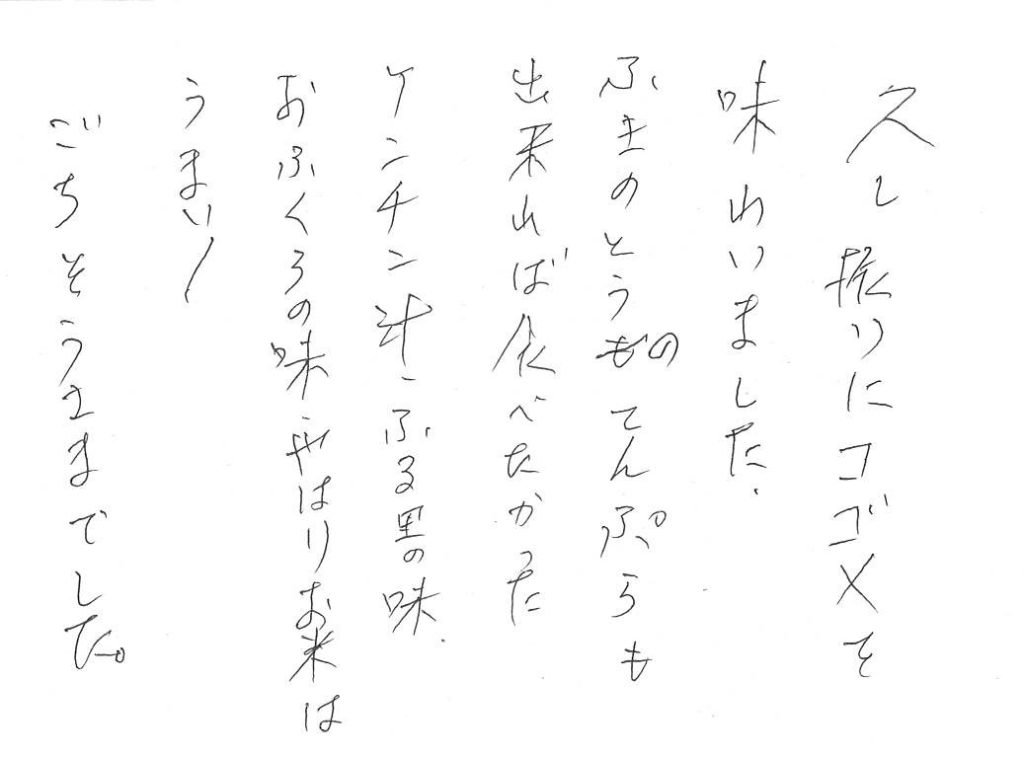 久し振りにコゴメを
味わいました.
ふきのとうのてんぷらも
出来れば食べたかった
ケンチン汁、ふる里の味.
おふくろの味やはりお米は
うまい!
ごちそうさまでした。